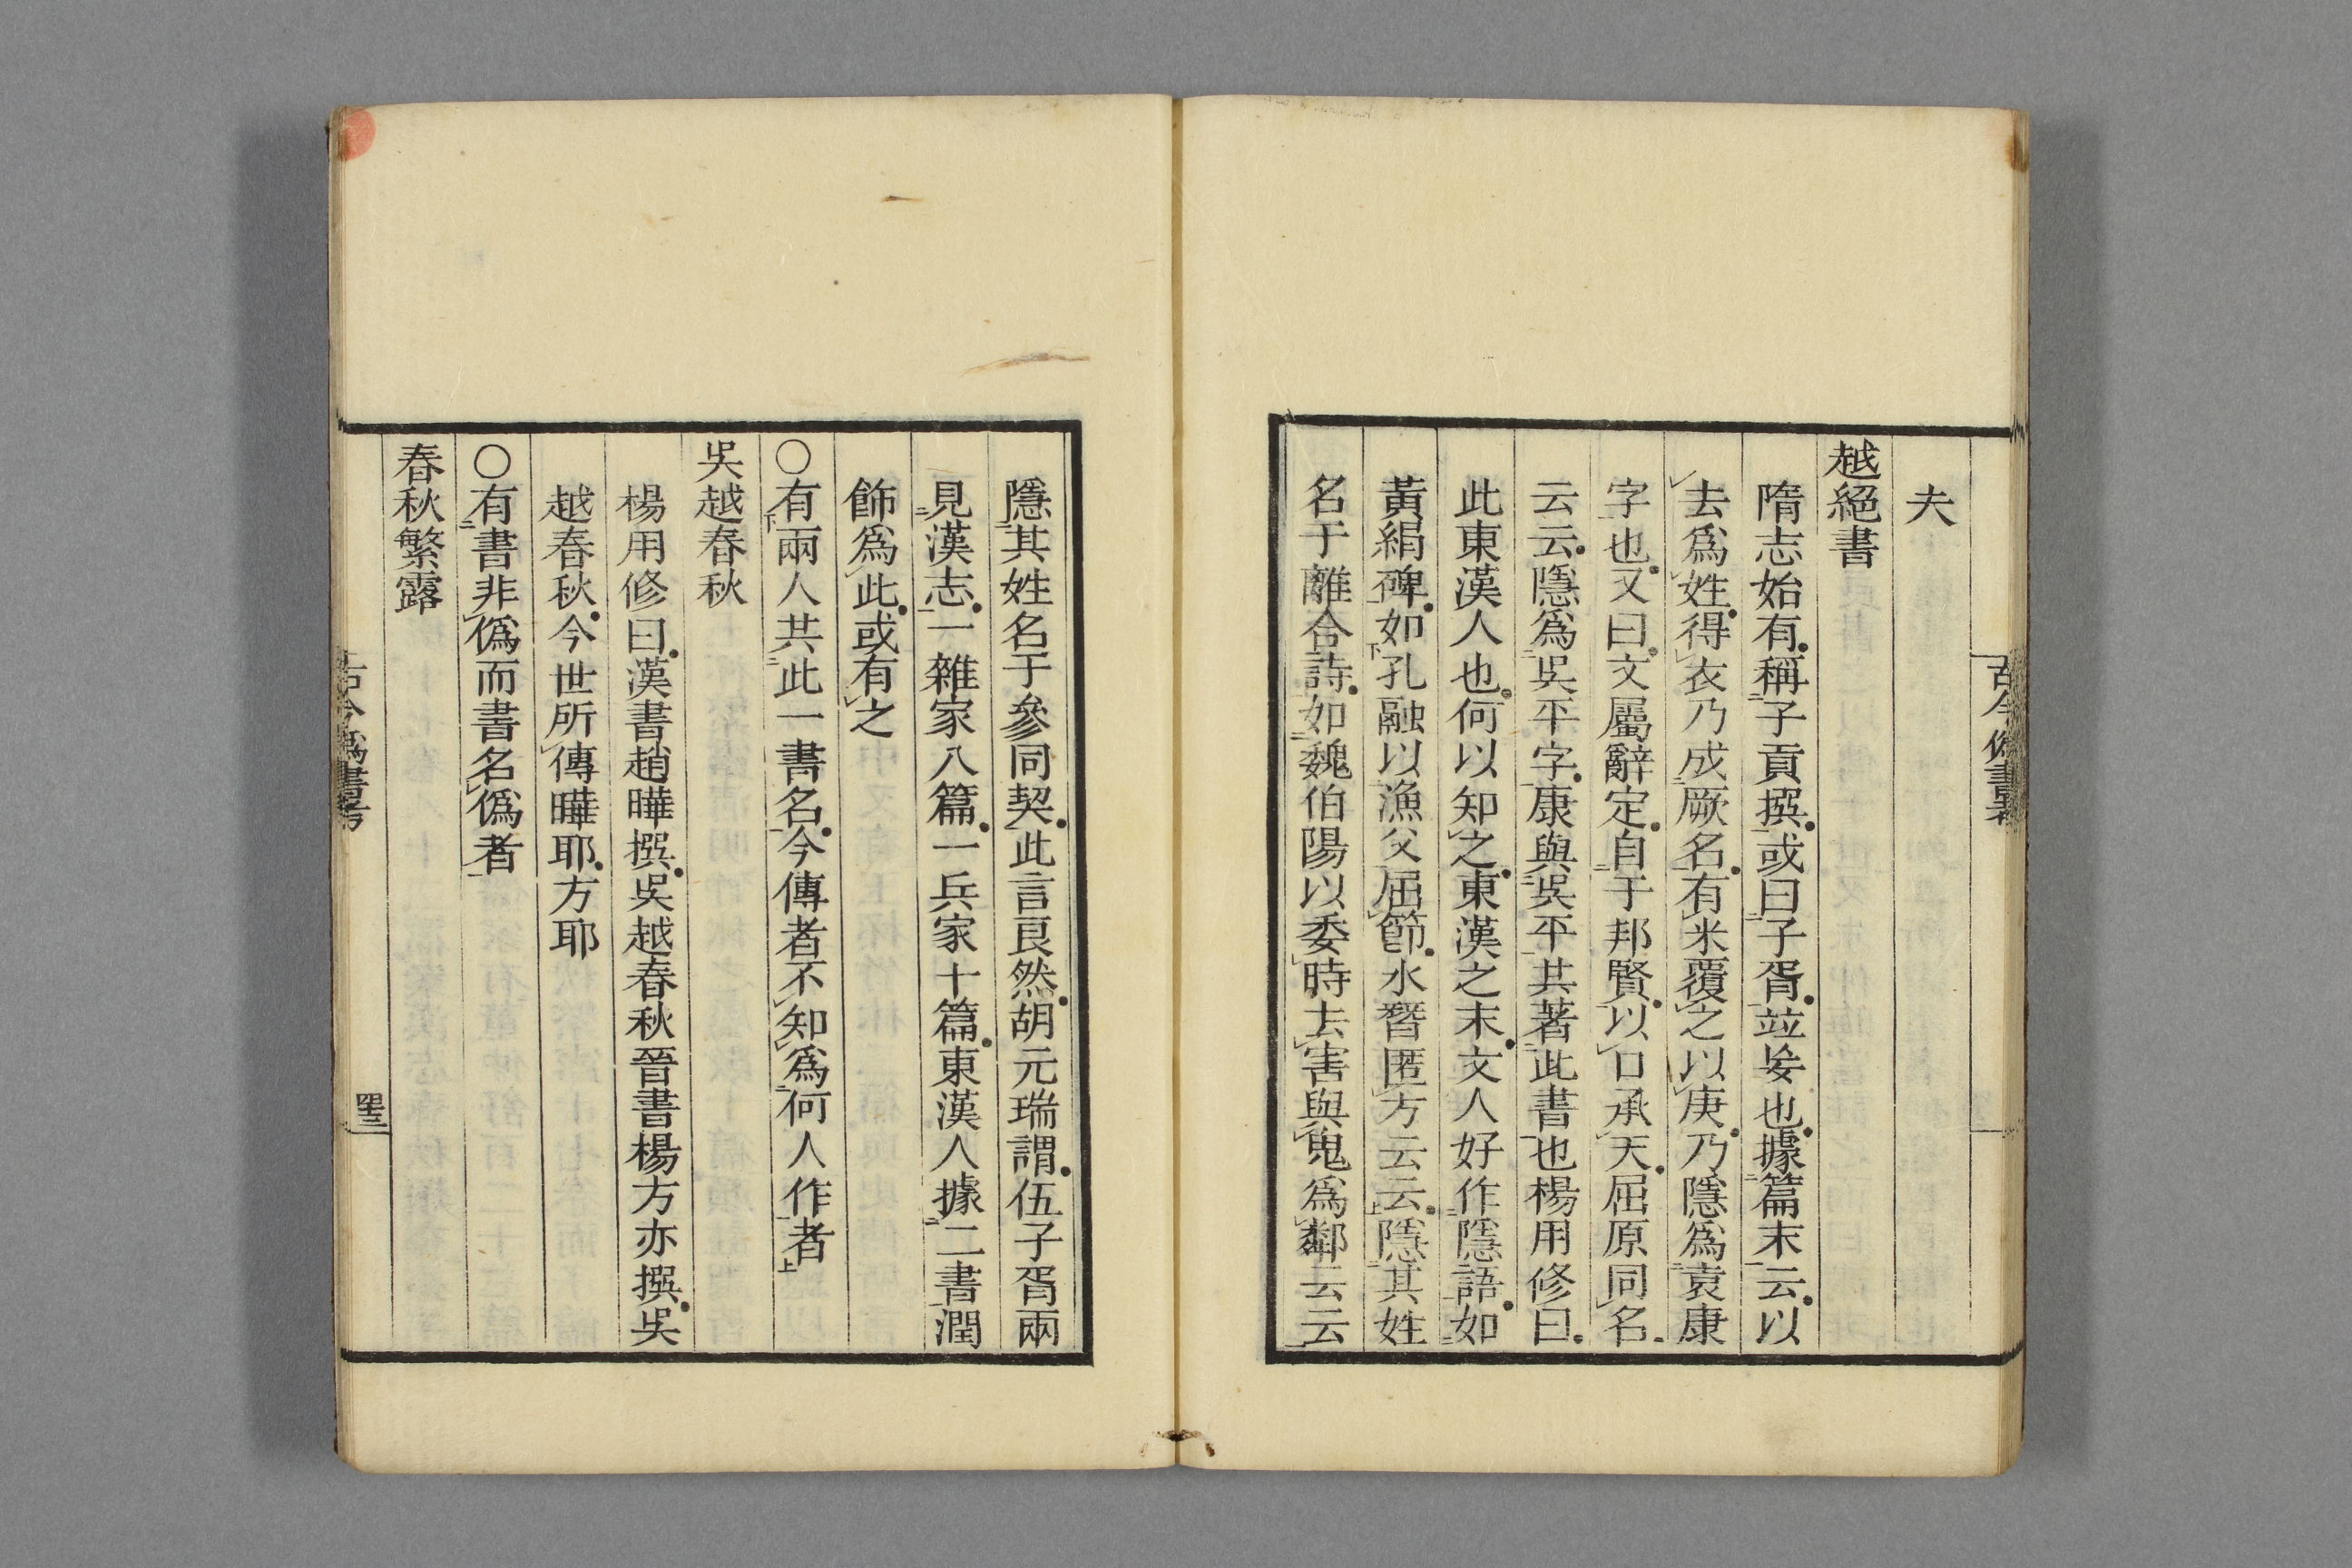 夫
越絕書
隋志始有稱子貢撰或曰子胥竝妄也據篇末云以
去爲姓得衣乃成厥名有米覆之以庚乃隱爲袁康
字也又曰文屬辭定自于邦賢以口承天屈原同名
云云隱爲吳平字康與吳平共著此書也楊用修曰
此東漢人也何以知之東漢之末文人好作隱語如
黃絹碑如孔融以漁父屈節水潛匿方云云隱其姓
名于離合詩如魏伯陽以委時去害與鬼爲鄰云云
隱其姓名于參同契此言良然胡元瑞謂伍子胥兩
見漢志一雜家八篇一兵家十篇東漢人據二書潤
飾爲此或有之
〇有兩人共此一書名今傳者不知爲何人作者
吳越春秋
楊用修曰漢書趙曄撰吳越春秋晉書楊方亦撰吳
越春秋今世所傳曄耶方耶
〇有書非僞而書名僞者
春秋繁露
古今僞書考
四十三